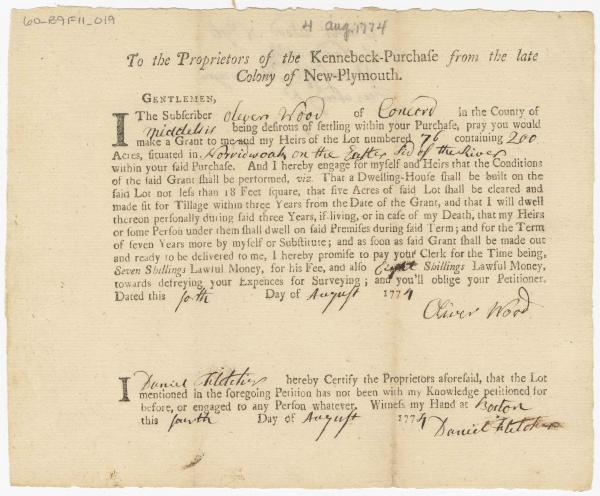 60-B9F11_019
4 aug. 1774
To the Proprietors of the Kennebeck-Purchase from the late
Colony of New-Plymouth.
GENTLEMEN,
I The Subscriber Oliver Wood of Concord in the County of
Middelsix being desirous of settling within your Purchase, pray you would
make a Grant to me and my Heirs of the Lot numbered 76 containing 200
Acres, situated in Norridwoak on the Easter Sid of the River
within your said Purchase. And I hereby engage for myself and Heirs that the Conditions
of the said Grant shall be performed, viz. That a Dwelling-House shall be built on the
said Lot not less than 18 Feet square, that five Acres of said Lot shall be cleared and
made fit for Tillage within three Years from the Date of the Grant, and that I will dwell
thereon personally during said three Years, if living, or in case of my Death, that my Heirs
or some Person under them shall dwell on said Premises during said Term; and for the Term
of seven Years more by myself or Substitute; and as soon as said Grant shall be made out
and ready to be delivered to me, I hereby promise to pay your Clerk for the Time being,
Seven Shillings Lawful Money, for his Fee, and also Eight Shillings Lawful Money,
towards defreying your Expences for Surveying; and you'll oblige your Petitioner.
Dated this forth Day of August 1774
Oliver Wood
I Daniel Fletcher hereby Certify the Proprietors aforesaid, that the Lot
mentioned in the foregoing Petition has not been with my Knowledge petitioned for
before, or engaged to any Person whatever. Witness my Hand at Boston
this fourth Day of August 1774
Daniel Fletcher